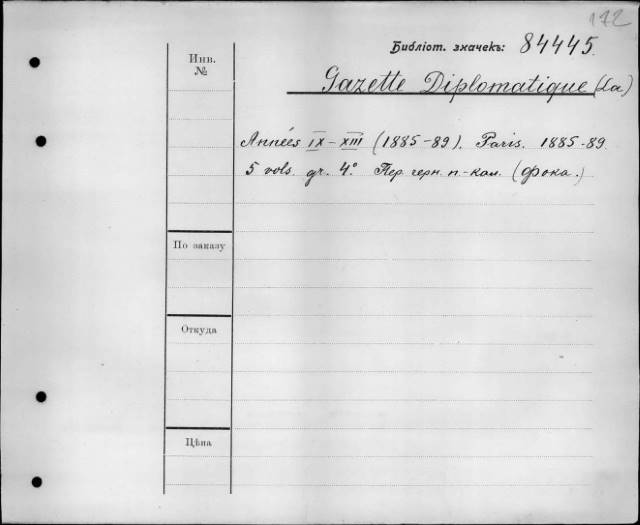 172
Библіот. значекъ: 84445.
Инв.
№
Gazette Diplomatique (La)
Années IX-XIII (1885-89). Paris. 1885-89.
5 vols. gr. 4°. Пер. черн. п-кал. (фока.)
По заказу
Откуда
Цѣна